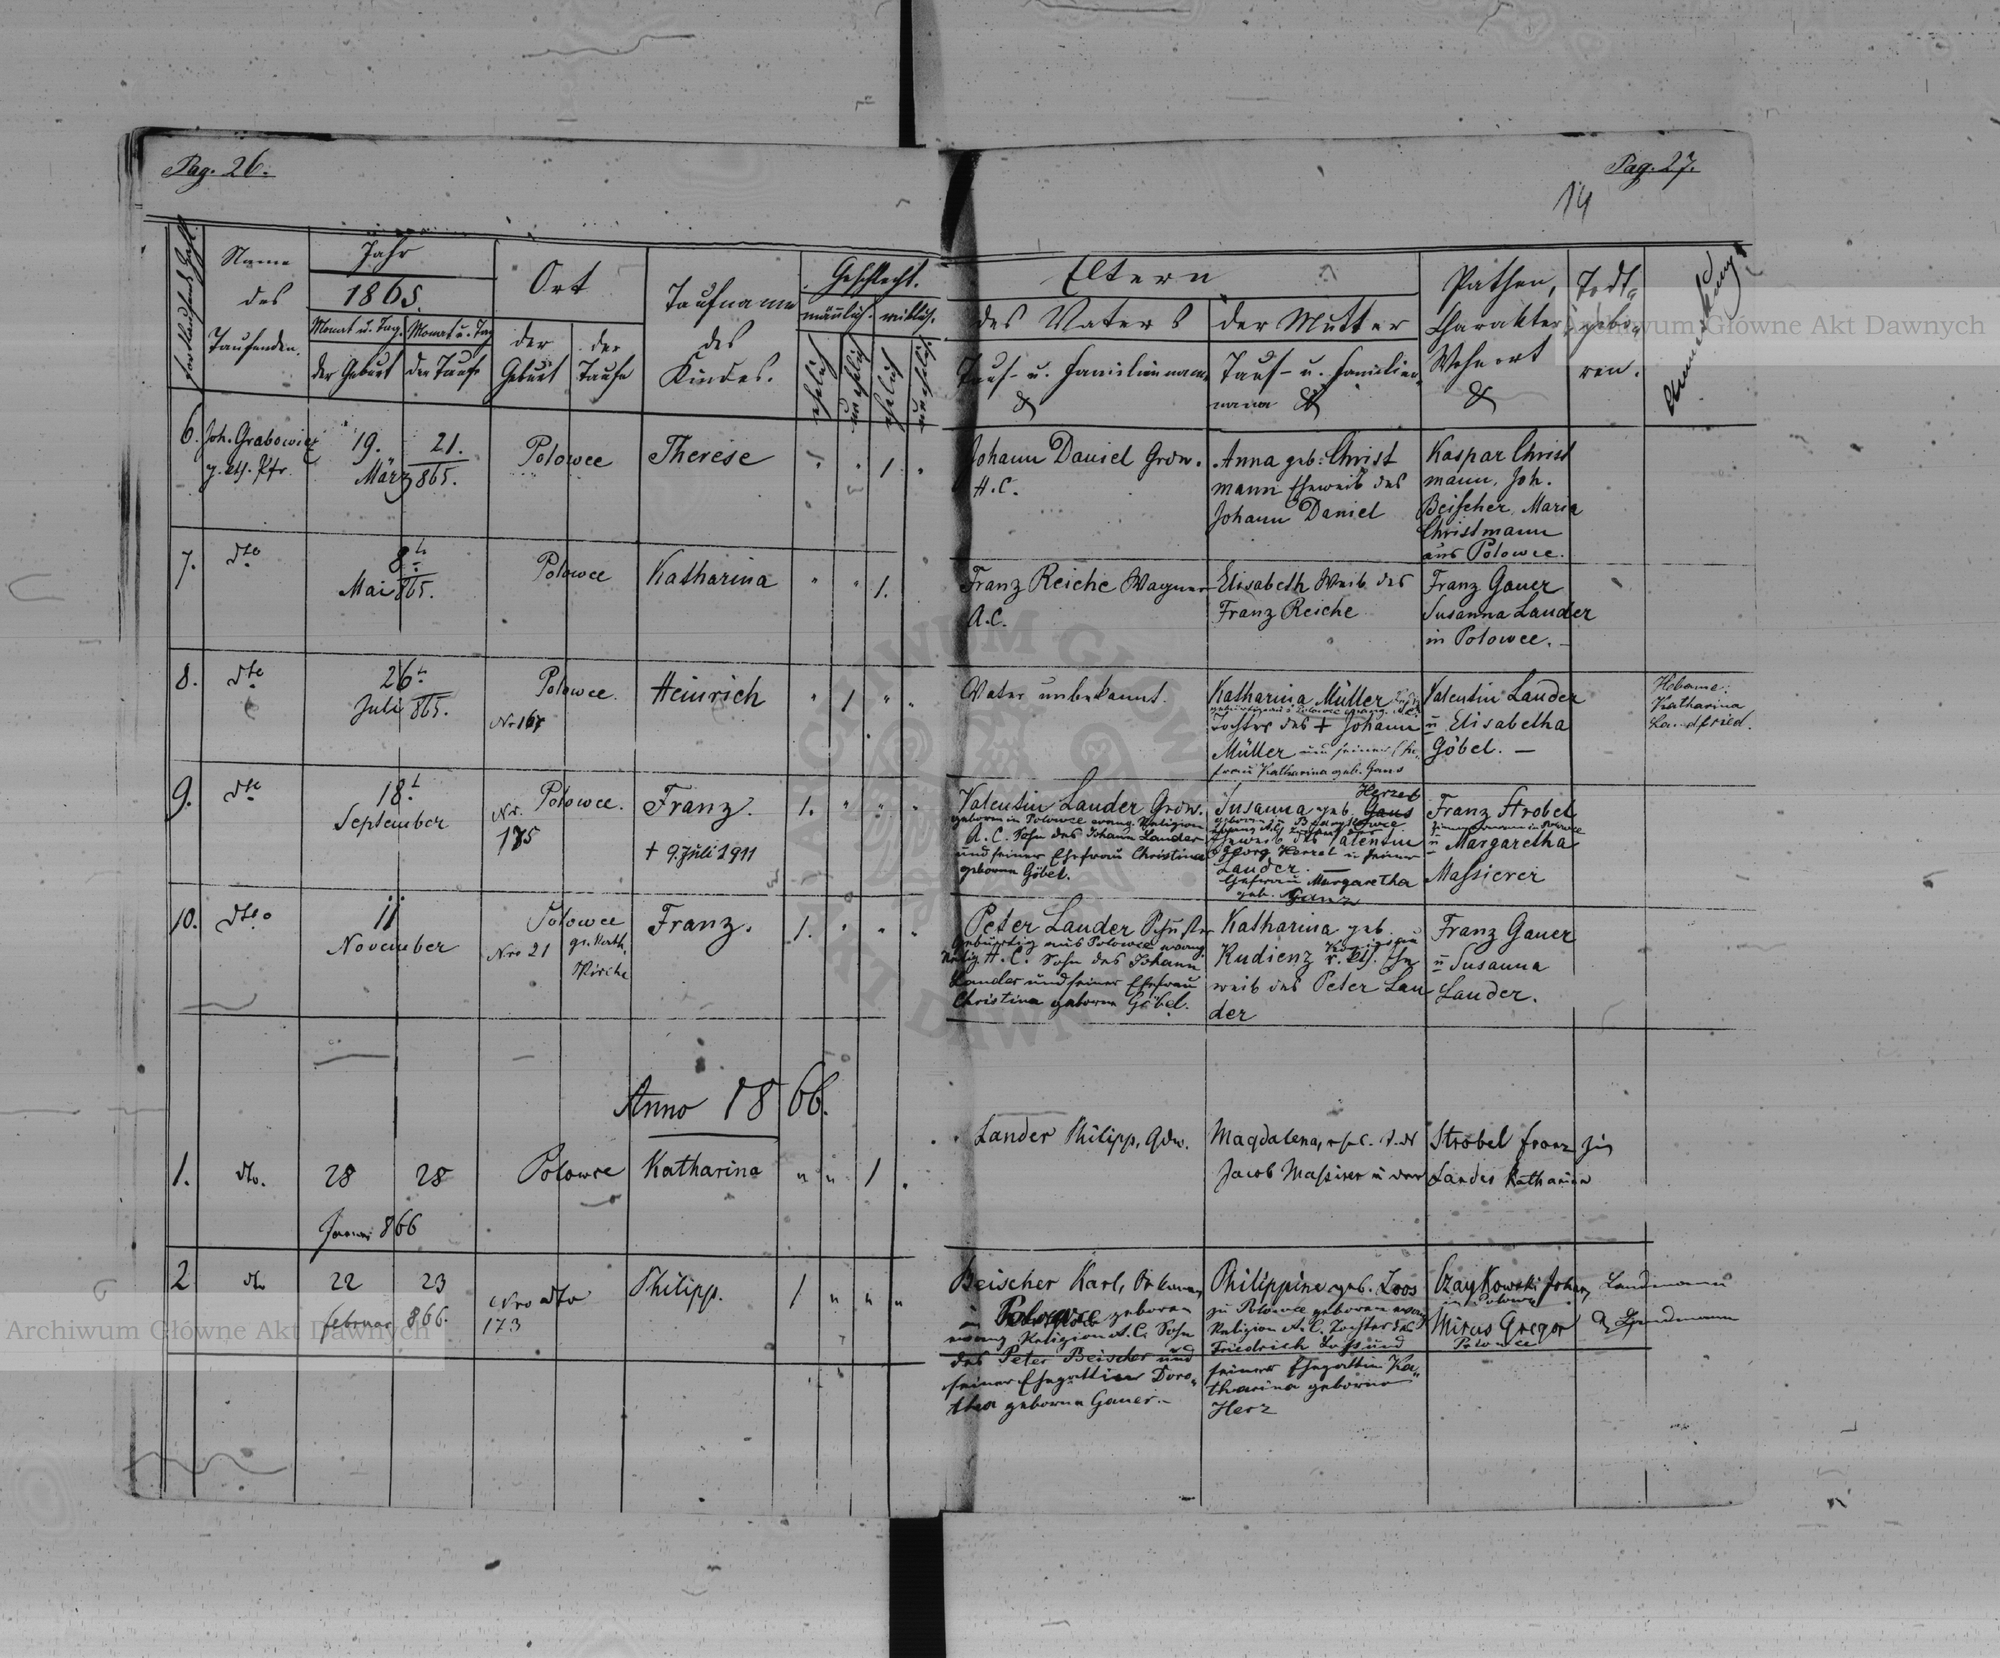 Pag. 26.
Pag. 27.
14
fortlaufende Zahl
Name
des
Taufenden.
Jahr
1865.
Monat u. Tag.
der Geburt
Monat u. Tag
der Taufe
Ort
der
Geburt
der
Taufe
Taufname
des
Kindes.
Geschlecht.
mänlich.
weiblich.
ehelich
unehelich
ehelich
unehelich
Eltern
des Vaters
Tauf- u. Familienname
der Mutter
Tauf- u. Familien-
name
Pathen,
Charakter
Wohnort
Todt-
gebo-
ren.
Anmerkung
6.
Joh. Grabowicz
g. kth. Pfr.
19.
21.
März 865.
Polowce
Therese
1
Johann Daniel Grdw.
H.C.
Anna geb. Christ
mann Eheweib des
Johann Daniel
Kaspar Christ
mann, Joh.
Beischer, Maria
Christmann
aus Polowce.
7.
dto
8.
Mai 865.
Polowce
Katharina
1.
Franz Reiche Wagner
A.C.
Elisabeth Weib des
Franz Reiche
Franz Gauer
Susanna Lauder
in Polowce.
8.
dto
26.
Juli 865.
Polowce.
Nr 167
Heinrich
1
Vater unbekannt.
Katharina Müller
Tochter des + Johann
Müller und seiner Ehe-
frau Katharina geb. Gans
Valentin Lauder
u Elisabetha
Göbel. —
Hebame:
Katharina
Landfried.
9.
dto
18.
September
Nr.
175
Polowce.
Franz.
+ 9. Juli 1911
1.
Valentin Lauder Grdw.
geboren in Polowce evang. Religion
A.C. Sohn des Johann Lauder
und seiner Ehefrau Christina
geborne Göbel.
Herzet
Susanna geb. Gans
Eheweib des Valentin
Georg Herzet u seiner
Lauder.
Ehefrau Margaretha
geb. Ganz
Franz Strobel
Zimmermann in Polowce
u Margaretha
Massierer
10.
dto
11
November
Polowce
Nro 21
gr. kath.
Kirche
Franz.
1.
Peter Lauder Schuster
gebürtig aus Polowce evang.
Relig. H.C. Sohn des Johann
Lauder und seiner Ehefrau
Christina geborne Göbel.
Katharina geb.
Kudienz r. kth. Ehe
weib des Peter Lau
der
Franz Gauer
u Susanna
Lauder.
Anno 1866.
1.
dto.
28
28
Januar 866
Polowce
Katharina
1
Lander Philipp, Gdw.
Magdalena,
Jacob Massirer u der
Strobel Franz
Lander Katharina
2
dto
22
23
februar 866.
Nro dto
173
Philipp.
1
Beischer Karl,
in Polowce geboren
evang. Religion A.C. Sohn
des Peter Beischer und
seiner Ehegattin Doro-
thea geborne Gauer.—
Philippine geb. Loos
zu Polowce geboren evang
Religion A.C. Tochter des
Friedrich Loss und
seiner Ehegattin Ka-
tharina geborne
Herz
Czaykowski Johann, Landmann
in Polowce
Mirus Gregor
Polowce
Archiwum Główne Akt Dawnych
Archiwum Główne Akt Dawnych
ARCHIWUM GŁÓWNE AKT DAWNYCH